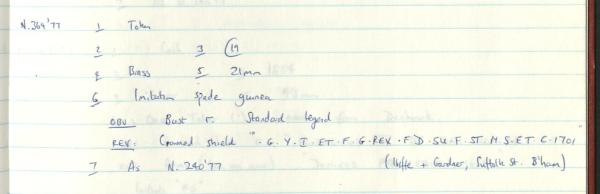 N.364'77 1 Token
2 3 19
4 Brass 5 21mm
6 Imitation spade guinea
OBV Bust r. Standard legend
REV. Crowned shield "·G·Y·I·ET·F·G·REX·F·D·SU·F·ST·M·S·ET·C·1701"
7 As N.240'77 (Iliffe + Gardner, Suffolk St. B'ham)